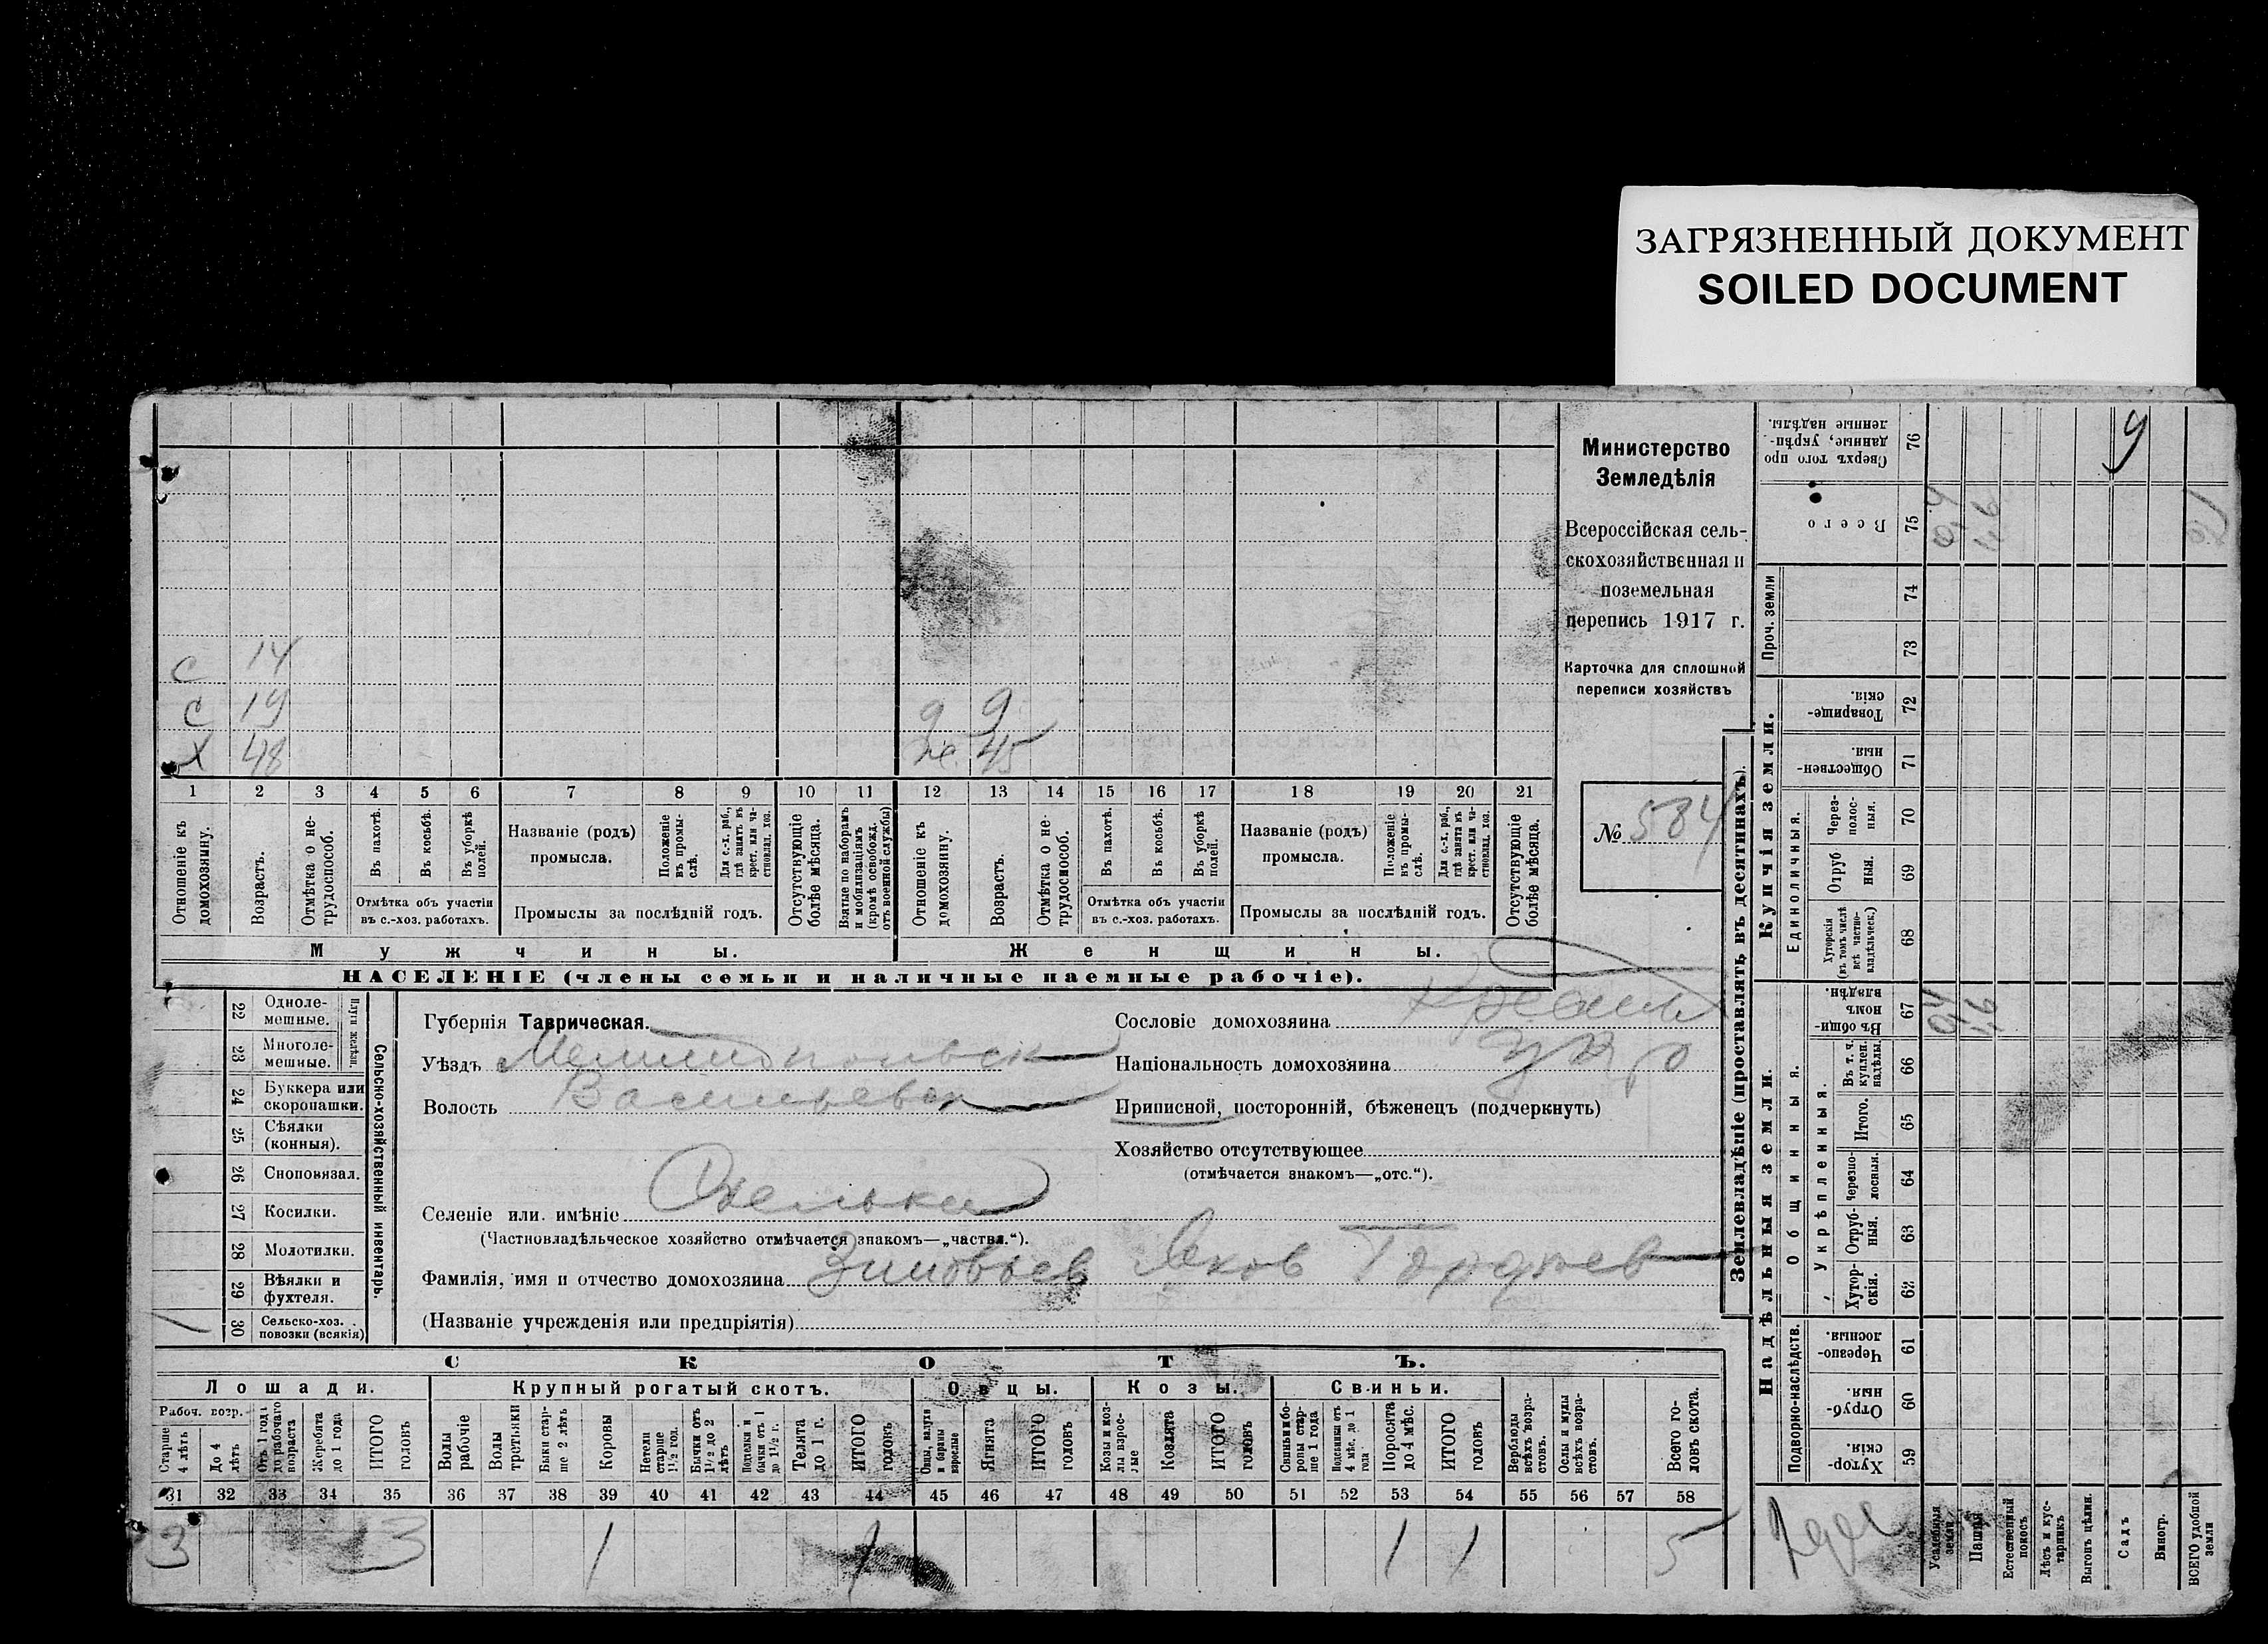 ЗАГРЯЗНЕННЫЙ ДОКУМЕНТ
SOILED DOCUMENT
Министерство
Земледѣлія
Всероссійская сель-
скохозяйственная и
поземельная
перепись 1917 г.
Карточка для сплошной
переписи хозяйствъ
№ 584
С 14
С 19
Х 48
9
ж. 45
1 2 3 4 5 6 7 8 9 10 11 12 13 14 15 16 17 18 19 20 21
Отношеніе къ домохозяину.
Возрастъ.
Отмѣтка о не-трудоспособ.
Въ пахотѣ.
Въ косьбѣ.
Въ уборкѣ полей.
Отмѣтка объ участіи въ с.-хоз. работахъ.
Названіе (родъ) промысла.
Положеніе въ промы-слѣ.
Для с.-х. раб., гдѣ занятъ въ крест. или ча-стновлад. хоз.
Промыслы за послѣдній годъ.
Отсутствующіе болѣе мѣсяца.
Взятые по наборамъ и мобилизаціямъ (кромѣ освобожд. отъ военной службы)
Отношеніе къ домохозяину.
Возрастъ.
Отмѣтка о не-трудоспособ.
Въ пахотѣ.
Въ косьбѣ.
Въ уборкѣ полей.
Отмѣтка объ участіи въ с.-хоз. работахъ.
Названіе (родъ) промысла.
Положеніе въ промы-слѣ.
Для с.-х. раб., гдѣ занята въ крест. или ча-стновлад. хоз.
Промыслы за послѣдній годъ.
Отсутствующіе болѣе мѣсяца.
Мужчины. Женщины.
НАСЕЛЕНІЕ (члены семьи и наличные наемные рабочіе).
22 Одноле-мешные.
23 Многоле-мешные.
Плуги желѣзн.
24 Буккера или скоропашки.
25 Сѣялки (конныя).
26 Сноповязал.
27 Косилки.
28 Молотилки.
29 Вѣялки и фухтеля.
30 Сельско-хоз. повозки (всякія) 1
Сельско-хозяйственный инвентарь.
Губернія Таврическая.
Уѣздъ Мелитопольск
Волость Васильевск
Селеніе или имѣніе
(Частновладѣльческое хозяйство отмѣчается знакомъ—„частвл.“).
Фамилія, имя и отчество домохозяина Зиновьев Яков Гордѣев
(Названіе учрежденія или предпріятія)
Сословіе домохозяина Крестьян
Національность домохозяина укр
Приписной, посторонній, бѣженецъ (подчеркнуть)
Хозяйство отсутствующее
(отмѣчается знакомъ—„отс.“).
СКОТЪ.
Лошади. Крупный рогатый скотъ. Овцы. Козы. Свиньи.
Рабоч. возр.
Старше 4 лѣтъ
До 4 лѣтъ
Отъ 1 года до рабочаго возраста
Жеребята до 1 года
ИТОГО головъ
Волы рабочіе
Волы третьяки
Быки стар-ше 2 лѣтъ
Коровы
Нетели старше 1½ год.
Бычки отъ 1½ до 2 лѣтъ
Подтелки и бычки отъ 1 до 1½ г.
Телята до 1 г.
ИТОГО головъ
Овцы, валухи и бараны взрослые
Ягнята
ИТОГО головъ
Козы и коз-лы взрос-лые
Козлята
ИТОГО головъ
Свиньи и бо-ровы стар-ше 1 года
Подсвинки отъ 4 мѣс. до 1 года
Поросята до 4 мѣс.
ИТОГО головъ
Верблюды всѣхъ возра-стовъ.
Ослы и мулы всѣхъ возра-стовъ.
Всего го-ловъ скота.
31 32 33 34 35 36 37 38 39 40 41 42 43 44 45 46 47 48 49 50 51 52 53 54 55 56 57 58
3 3 1 1 1 1 5
Землевладѣніе (проставлять въ десятинахъ).
Надѣльныя земли. Купчія земли. Проч. земли
Подворно-наслѣдств.
Общинныя.
Укрѣпленныя.
Единоличныя.
59 Хутор-скія.
60 Отруб-ныя.
61 Черезпо-лосныя.
62 Хутор-скія.
63 Отруб-ныя.
64 Черезпо-лосныя.
65 Итого.
66 Въ т. ч. куплен. надѣлы.
67 Въ общин-номъ владѣн.
68 Хуторскія (въ томъ числѣ всѣ частно-владѣльческ.)
69 Отруб ныя.
70 Через-полос-ныя.
71 Обществен-ныя.
72 Товарище-скія.
73
74
75 Всего
76 Сверхъ того про данные, укрѣп-ленные надѣлы.
Усадебныя земли
Пашня
Естественный покосъ
Лѣсъ и кус-тарникъ
Выгонъ цѣлин.
Садъ
Виногр.
ВСЕГО удобной земли